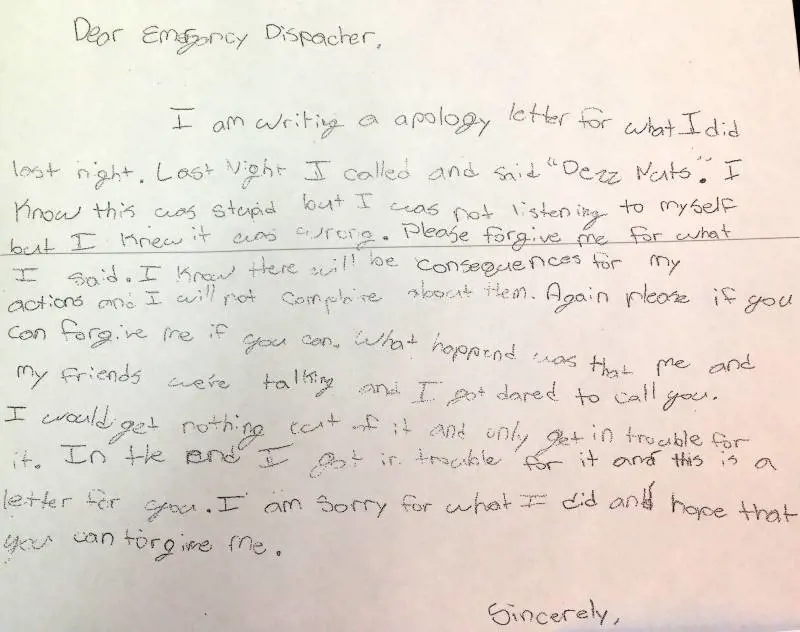 Dear Emergency Dispacher,
I am writing a apology letter for what I did
last night. Last Night I called and said "Dezz Nuts". I
Know this was stupid but I was not listening to myself
but I knew it was wrong. Please forgive me for what
I said. I know there will be consequences for my
actions and I will not complaire about them. Again please if you
can forgive me if you can. What happend was that me and
my friends we're talking and I got dared to call you.
I would get nothing out of it and only get in trouble for
it. In the end I got in trouble for it and this is a
letter for you. I am sorry for what I did and hope that
you can forgive me.
Sincerely,